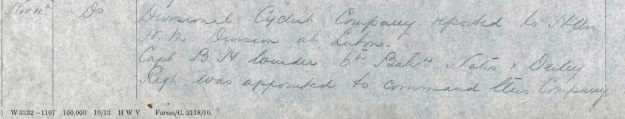 Do Divisional Cyclist Company reported to H.Qrs
N.M. Division at Luton.
Capt B.H. 6th Battn Notts & Derby
Regt was appointed to command this Company
W 5132—1107 160,000 10/13 H W V Forms/C. 2118/10.